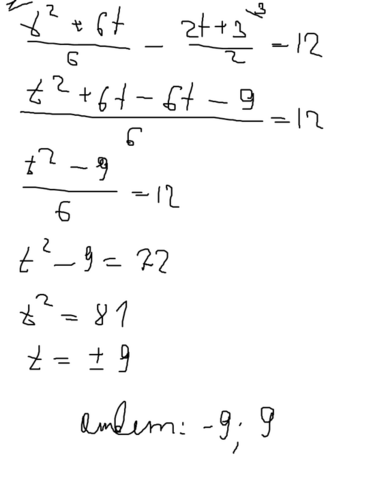 (t² + 6t)/6 − (2t + 3)/2 ³ = 12
(t² + 6t − 6t − 9)/6 = 12
(t² − 9)/6 = 12
t² − 9 = 72
t² = 81
t = ± 9
ответ: -9; 9